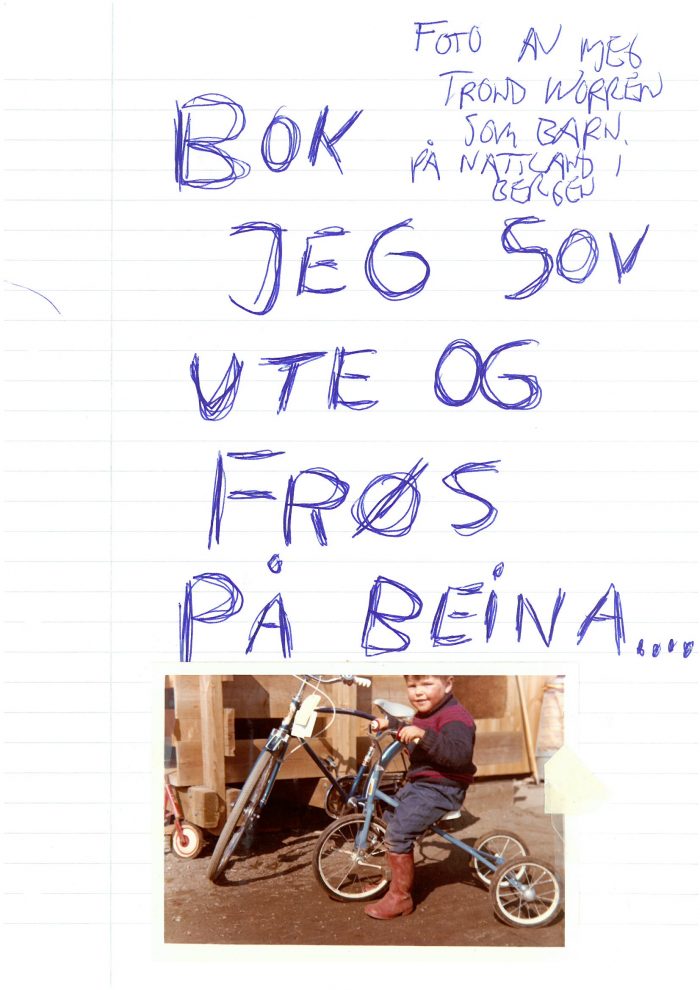 FOTO AV MEG
TROND WORREN
SOM BARN.
PÅ NATTLAND I
BERGEN
BOK
JEG SOV
UTE OG
FRØS
PÅ BEINA....